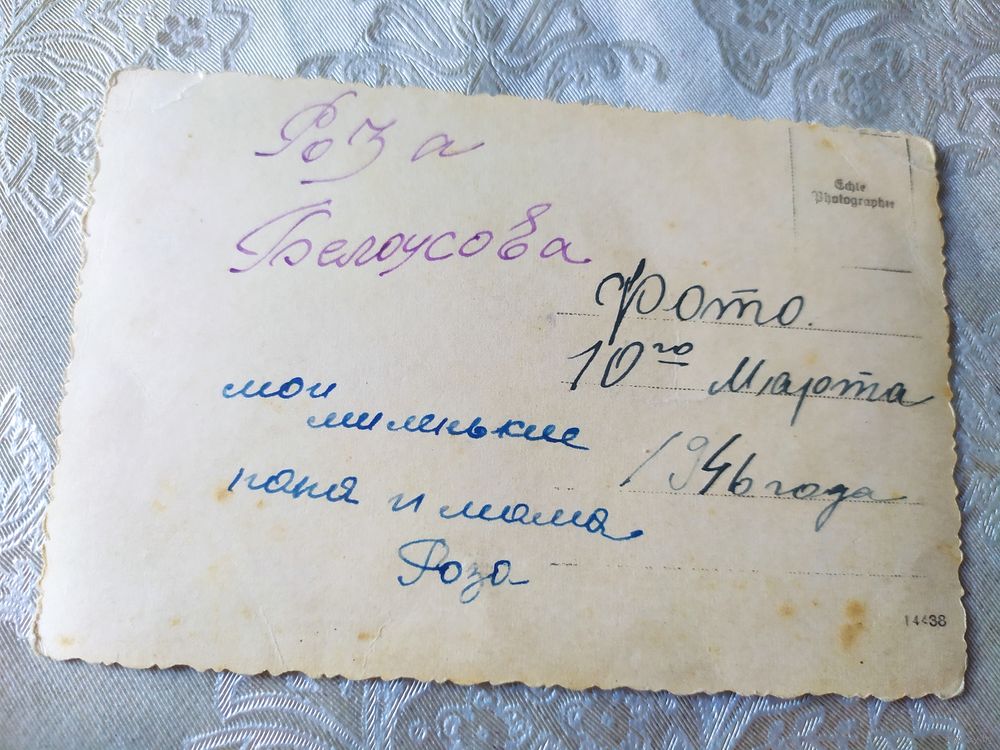 Роза
Белоусова
Echte
Photographie
Фото.
10го Марта
1946 года
мои
миленькие
папа и мама
Роза
14438